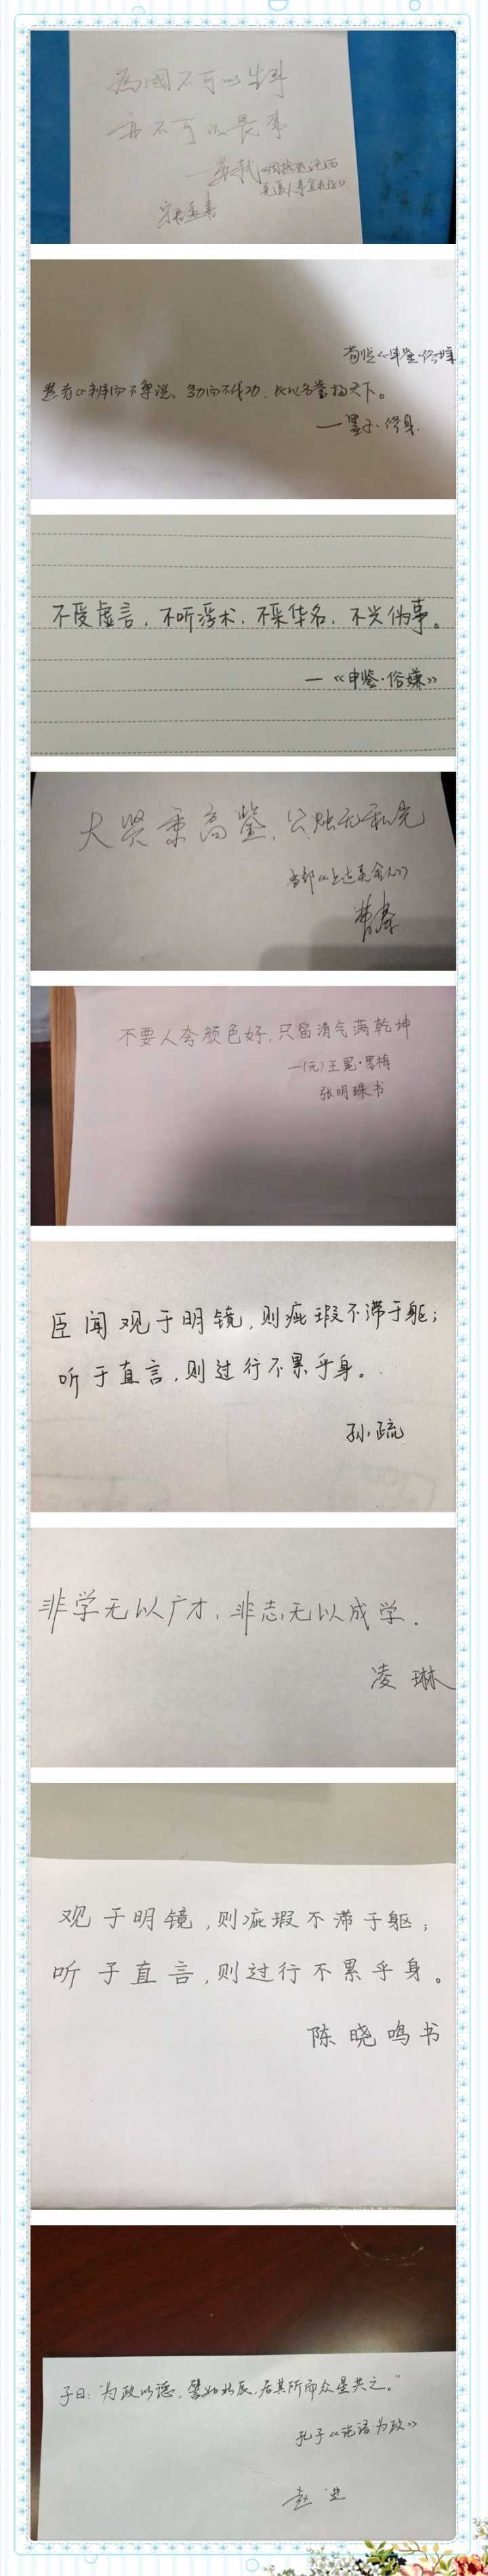 為國不可以生事
亦不可以畏事
—苏轼《因擒鬼章论西
羌夏人事宜札子》
荀悦《申鉴·俗嫌
慧者心辩而不繁说、多力而不伐功,此以名誉扬天下。
—墨子·修身.
不受虚言,不听浮术,不采华名,不兴伪事。
—《申鉴·俗嫌》
大贤秉高鉴,公烛无私光
孟郊《上达奚舍人》
不要人夸颜色好,只留清气满乾坤
—(元)王冕·墨梅
张明珠书
臣闻观于明镜,则疵瑕不滞于躯;
听于直言,则过行不累乎身。
孙疏
非学无以广才,非志无以成学.
凌琳
观于明镜,则疵瑕不滞于躯;
听于直言,则过行不累乎身。
陈晓鸣书
子曰:“为政以德,譬如北辰,居其所而众星共之。”
孔子《论语为政》